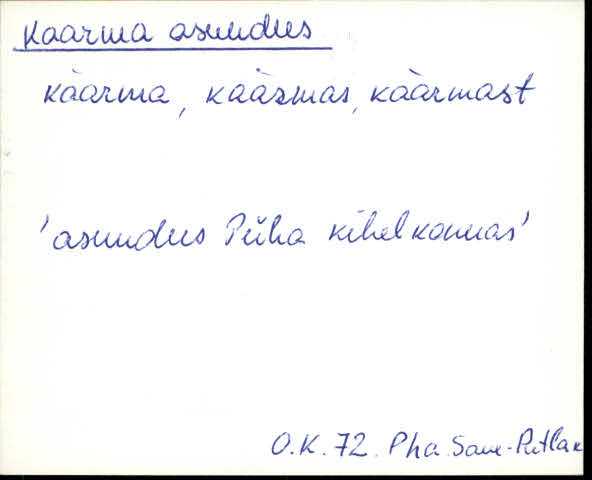 Kaarma asundus
kàarma, kàarmas, kàarmast
'asundus Püha kihelkonnas'
O.K. 72. Pha Saue-Putla